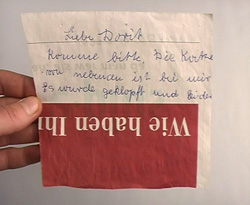 Liebe Dorit
Komme bitte. Die Katze
von nebenan ist bei mir
Es wurde geklopft und
Wie haben Ih